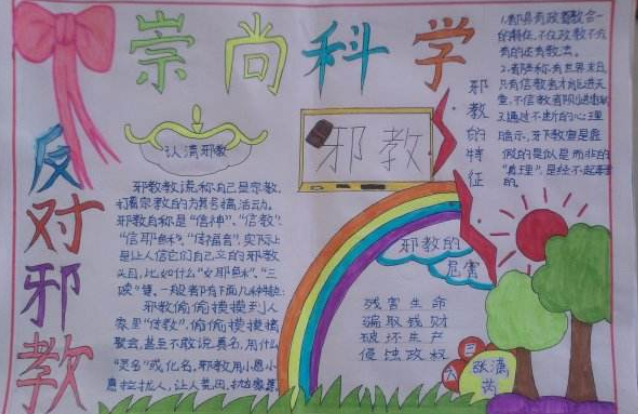 崇尚科学
反对邪教
认清邪教
邪教教谎称自己是宗教,
打着宗教的方旗号搞活动。
邪教自称是“信神”、“信教”、
“信耶稣”、“传福音”,实际上
是让人信它们自己立的邪教
头目,比如什么“女耶稣”、“三
赎”等,一般都有下面几种
邪教偷偷摸摸到人
家里“传教”,偷偷摸摸搞
聚会,甚至不敢说真名,用什么
“灵名”或化名,邪教用小恩小
惠拉拢人,让人
邪教
邪教的特征
1.都具有政教合一
的特征,不仅政教不分
有的还有教法。
2.都声称有世界末日,
只有信教者才能进天
堂,不信教者
又通过不断的心理
暗示,
做的是似是而非的
“真理”,是经不起
的。
邪教的
危害
残害生命
骗取钱财
破坏生产
侵蚀政权